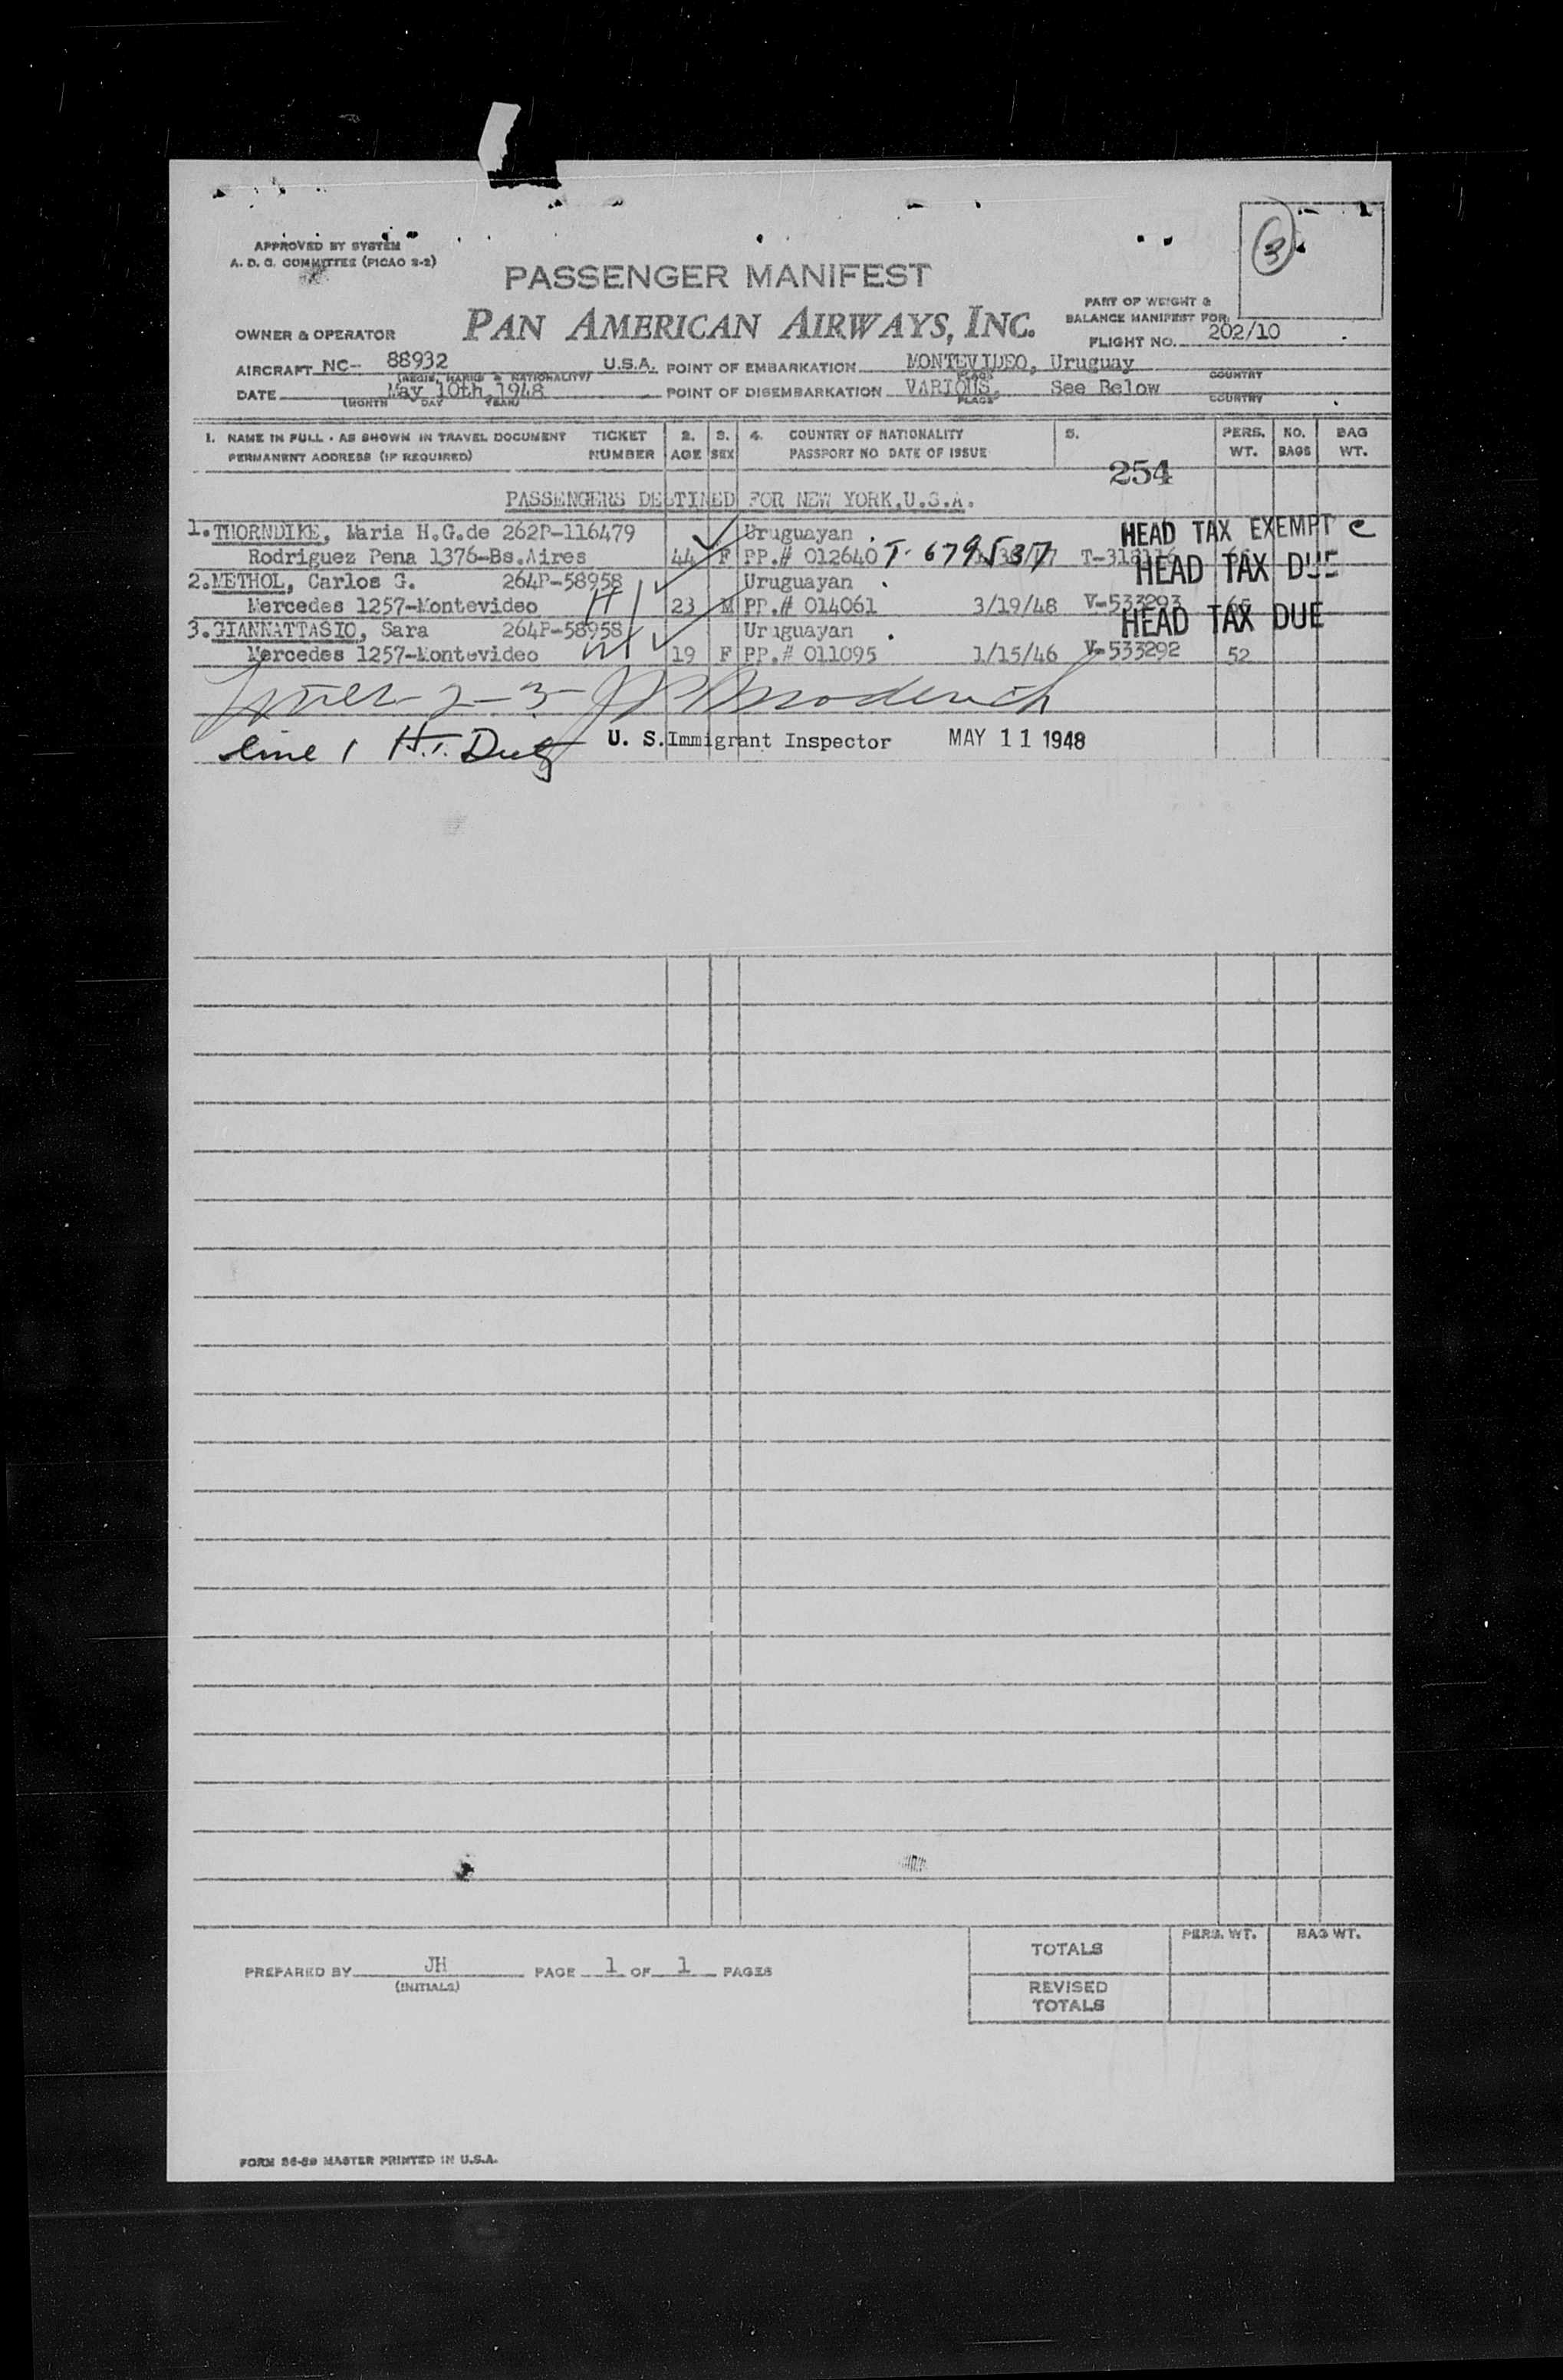 APPROVED BY SYSTEM
A. D. C. COMMITTEE (PICAO 2-2)
3
PASSENGER MANIFEST
PAN AMERICAN AIRWAYS, INC.
PART OF WEIGHT &
BALANCE MANIFEST FOR
FLIGHT NO. 202/10
OWNER & OPERATOR
AIRCRAFT NC- 88932 U.S.A. POINT OF EMBARKATION MONTEVIDEO, Uruguay
(REGIS. MARKS & NATIONALITY) PLACE COUNTRY
DATE May 10th, 1948 POINT OF DISEMBARKATION VARIOUS, See Below
(MONTH DAY YEAR) PLACE COUNTRY
1. NAME IN FULL - AS SHOWN IN TRAVEL DOCUMENT TICKET 2. 3. 4. COUNTRY OF NATIONALITY 5. PERS. NO. BAG
PERMANENT ADDRESS (IF REQUIRED) NUMBER AGE SEX PASSPORT NO DATE OF ISSUE WT. BAGS WT.
254
PASSENGERS DESTINED FOR NEW YORK, U.S.A.
1. THORNDIKE, Maria H.G.de 262P-116479 Uruguayan HEAD TAX EXEMPT C
Rodriguez Pena 1376-Bs.Aires 44 F PP.# 012640 T-679537 HEAD TAX DUE
2. METHOL, Carlos G. 264P-58958 Uruguayan
Mercedes 1257-Montevideo H 23 M PP.# 014061 3/19/48 V-533293
HEAD TAX DUE
3. GIANNATTASIO, Sara 264P-58958 Uruguayan
Mercedes 1257-Montevideo W 19 F PP.# 011095 1/15/46 V-533292 52
Lines 2-3
line 1 H.T. U. S. Immigrant Inspector MAY 11 1948
PREPARED BY JH PAGE 1 OF 1 PAGES
(INITIALS)
TOTALS PERS. WT. BAG WT.
REVISED
TOTALS
FORM 36-59 MASTER PRINTED IN U.S.A.